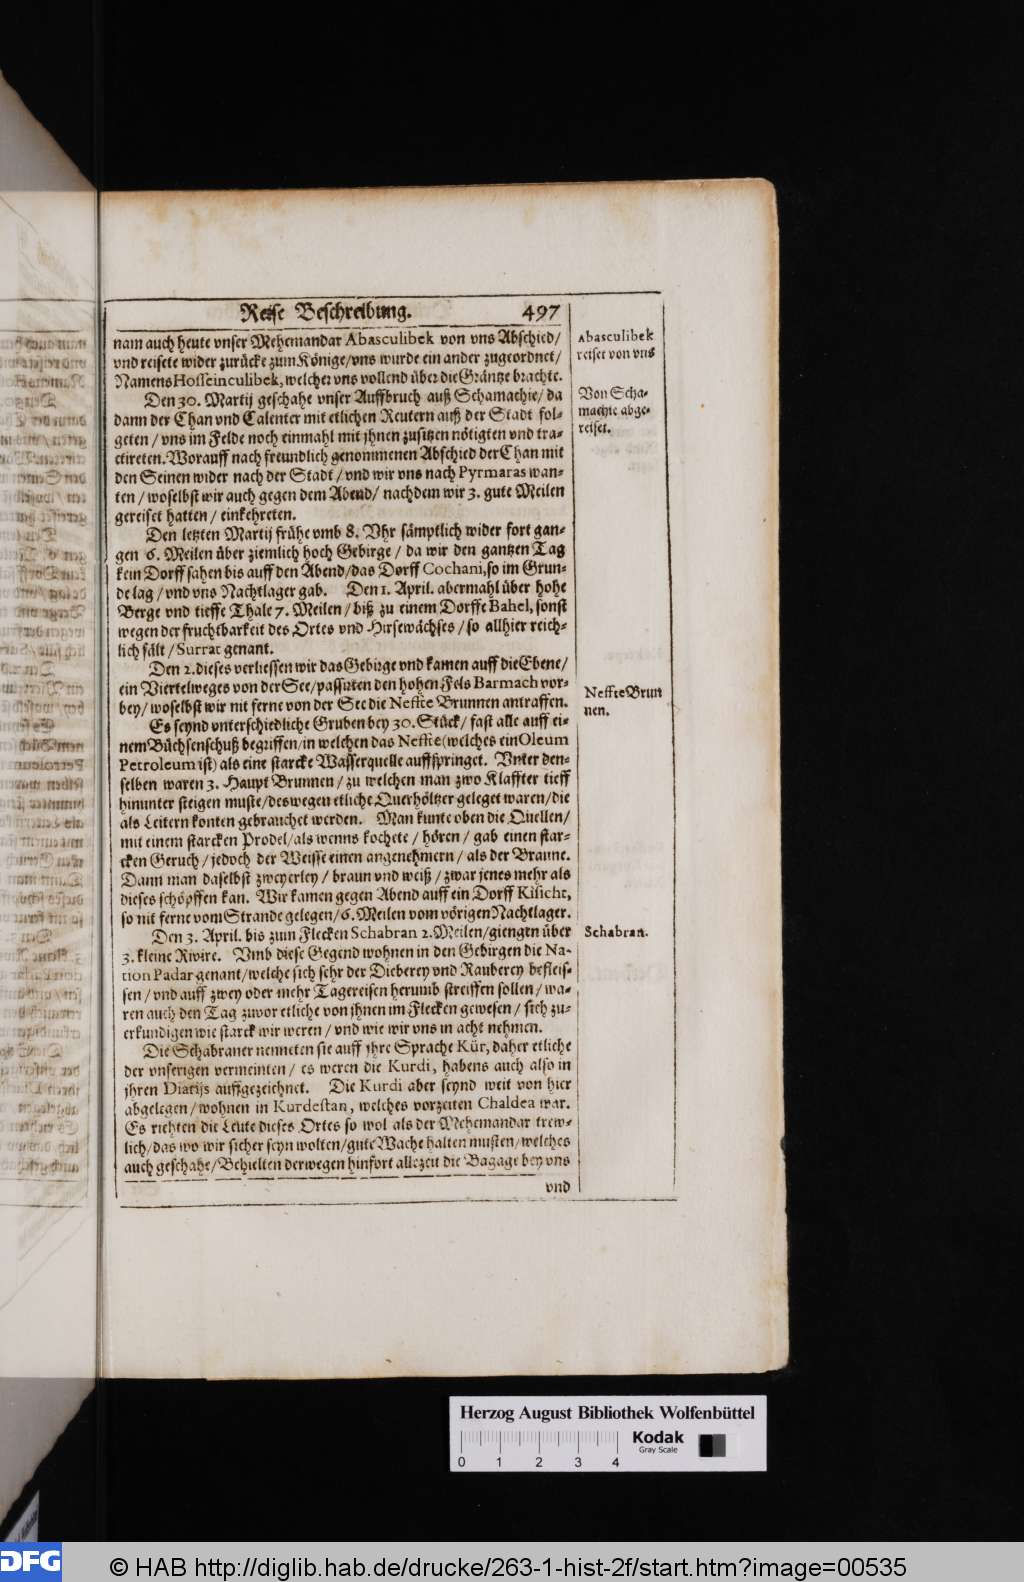 Reise Beschreibung. 497
nam auch heute vnser Mehemandar Abasculibek von vns Abschied/
vnd reisete wider zurücke zum Könige/vns wurde ein ander zugeordnet/
Namens Hosseinculibek, welcher vns vollend über die Gräntze brachte.
Abasculibek
reiset von vns
Den 30. Martij geschahe vnser Auffbruch auß Schamachie/ da
dann der Chan vnd Calenter mit etlichen Reutern auß der Stadt fol-
geten / vns im Felde noch einmahl mit jhnen zusitzen nötigten vnd tra-
ctireten. Worauff nach freundlich genommenen Abschied der Chan mit
den Seinen wider nach der Stadt / vnd wir vns nach Pyrmaras wan-
ten / woselbst wir auch gegen dem Abend/ nachdem wir 3. gute Meilen
gereiset hatten / einkehreten.
Von Scha-
machie abge-
reiset.
Den letzten Martij frühe vmb 8. Vhr sämptlich wider fort gan-
gen 6. Meilen über ziemlich hoch Gebirge / da wir den gantzen Tag
kein Dorff sahen bis auff den Abend/das Dorff Cochani, so im Grun-
de lag / vnd vns Nachtlager gab. Den 1. April. abermahl über hohe
Berge vnd tieffe Thale 7. Meilen / biß zu einem Dorffe Bahel, sonst
wegen der fruchtbarkeit des Ortes vnd Hirsewächses / so allhier reich-
lich fält / Surrat genant.
Den 2. dieses verliessen wir das Gebirge vnd kamen auff die Ebene/
ein Viertelweges von der See/passirten den hohen Fels Barmach vor-
bey/ woselbst wir nit ferne von der See die Neffte Brunnen antraffen.
Neffte Brun
nen.
Es seynd vnterschiedliche Gruben bey 30. Stück/ fast alle auff ei-
nem Büchsenschuß begriffen/in welchen das Neffte (welches ein Oleum
Petroleum ist) als eine starcke Wasserquelle auffspringet. Vnter den-
selben waren 3. Haupt Brunnen / zu welchen man zwo Klaffter tieff
hinunter steigen muste/deswegen etliche Querhöltzer geleget waren/die
als Leitern konten gebrauchet werden. Man kunte oben die Quellen/
mit einem starcken Prodel/als wenns kochete / hören / gab einen star-
cken Geruch / jedoch der Weisse einen angenehmern / als der Braune.
Dann man daselbst zweyerley / braun vnd weiß / zwar jenes mehr als
dieses schöpffen kan. Wir kamen gegen Abend auff ein Dorff Kisicht,
so nit ferne vom Strande gelegen/ 6. Meilen vom vörigen Nachtlager.
Den 3. April. bis zum Flecken Schabran 2. Meilen/giengen über
3. kleine Rivire. Vmb diese Gegend wohnen in den Gebirgen die Na-
tion Padar genant/welche sich sehr der Dieberey vnd Rauberey befleis-
sen / vnd auff zwey oder mehr Tagereisen herumb streiffen sollen / wa-
ren auch den Tag zuvor etliche von jhnen im Flecken gewesen / sich zu-
erkundigen wie starck wir weren / vnd wie wir vns in acht nehmen.
Schabran.
Die Schabraner nenneten sie auff jhre Sprache Kür, daher etliche
der vnserigen vermeinten / es weren die Kurdi, habens auch also in
jhren Diarijs auffgezeichnet. Die Kurdi aber seynd weit von hier
abgelegen / wohnen in Kurdestan, welches vorzeiten Chaldea war.
Es riehten die Leute dieses Ortes so wol als der Mehemandar trew-
lich/das wo wir sicher seyn wolten/gute Wache halten musten/welches
auch geschahe/Behielten derwegen hinfort allezeit die Bagage bey vns
vnd
Herzog August Bibliothek Wolfenbüttel
Kodak
Gray Scale
0 1 2 3 4
DFG
© HAB http://diglib.hab.de/drucke/263-1-hist-2f/start.htm?image=00535